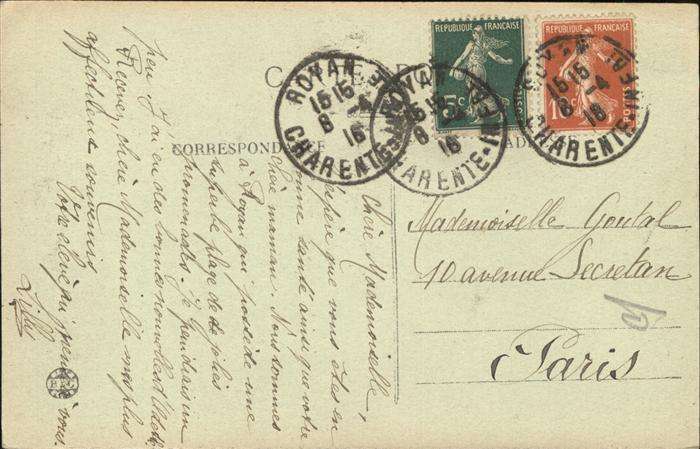 CORRESPONDANCE
REPUBLIQUE FRANÇAISE
5c
POSTES
REPUBLIQUE FRANÇAISE
10c
POSTES
ROYAN
15 15
8 - 4
16
CHARENTE INFRE
ROYAN
15 15
8 - 4
16
CHARENTE-INFRE
ROYAN
15 15
8 - 4
16
CHARENTE-INFRE
Mademoiselle Goutal
10 avenue Secretan
Paris
Chère Mademoiselle,
J'espère que vous êtes en
bonne santé ainsi que votre
chère maman. Nous sommes
à Royan qui possède une
superbe plage et de jolies
promenades. Je
peu. J'ai eu des bonnes nouvelles
Recevez, chère Mademoiselle mes plus
affectueux souvenirs
Votre élève qui pense à vous.